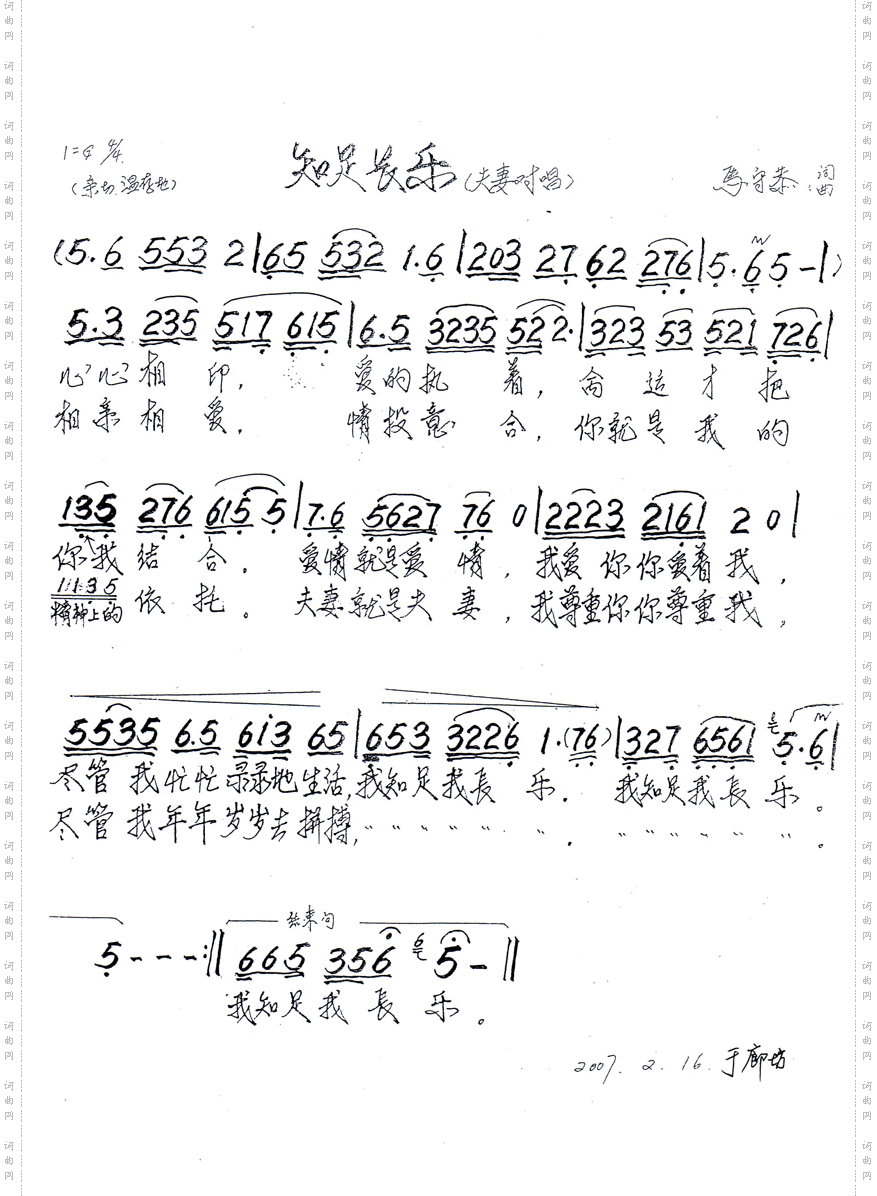 1=G 4/4
知足长乐(夫妻对唱)
(亲切.温存地)
马守恭 词曲
(5.6 553 2|65 532 1.6|203 27 62 276|5.65-|)
5.3 235 517 615|6.5 3235 522 2.|323 53 521 726|
心心相印, 爱的执着,命运才把
相亲相爱, 情投意合,你就是我的
135 276 615 5|7.6 5627 76 0|2223 2161 2 0|
你我结合。爱情就是爱情,我爱你你爱着我,
1135
精神上的依托。夫妻就是夫妻,我尊重你你尊重我,
5535 6.5 6i3 65|653 3226 1.(76)|327 6561 5.6|
尽管我忙忙录录地生活,我知足我長乐. 我知足我長乐。
尽管我年年岁岁去拼搏,〃〃〃〃〃〃. 〃〃〃〃〃〃。
结束句
5---:‖665 356 6 5-‖
我知足我長乐。
2007.2.16.于廊坊
词曲网